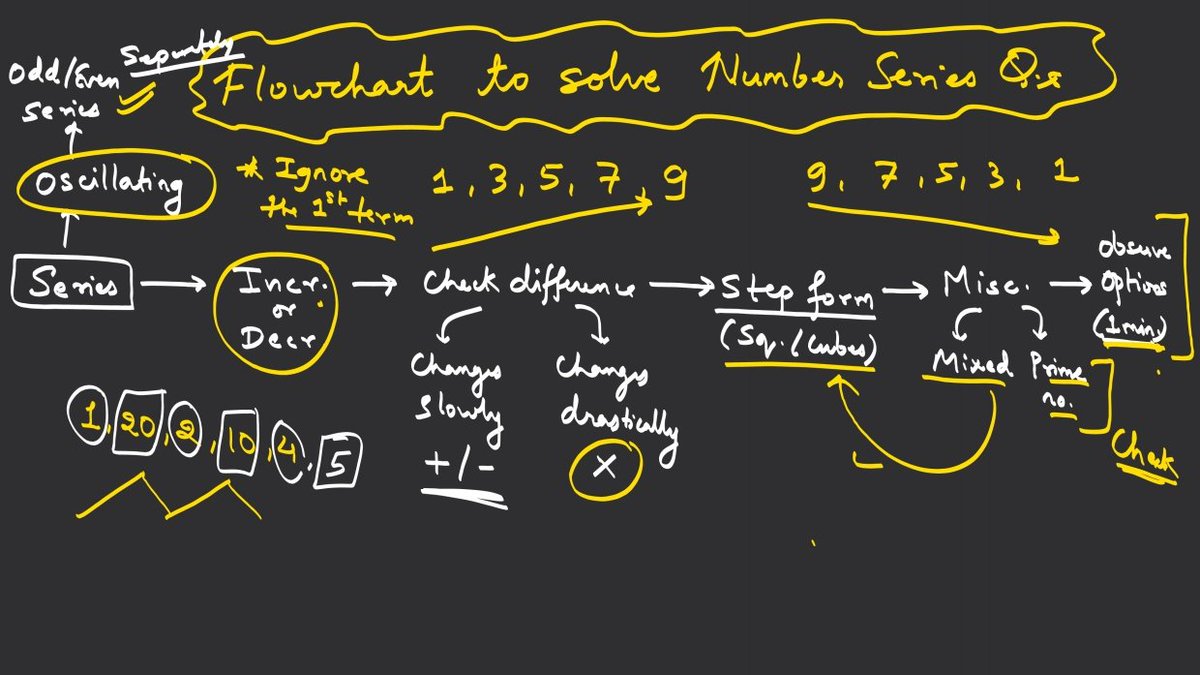 Separately
Odd/Even
Series
Flowchart to solve Number Series Q.s
Oscillating
* Ignore
the 1st term
1, 3, 5, 7, 9
9, 7, 5, 3, 1
Series → Incr. or Decr → Check difference → Step form → Misc. → observe options (1 min)
(Sq. / Cubes)
Changes
slowly
+/-
Changes
drastically
×
Mixed
Prime
no.
Check
1, 20, 2, 10, 4, 5